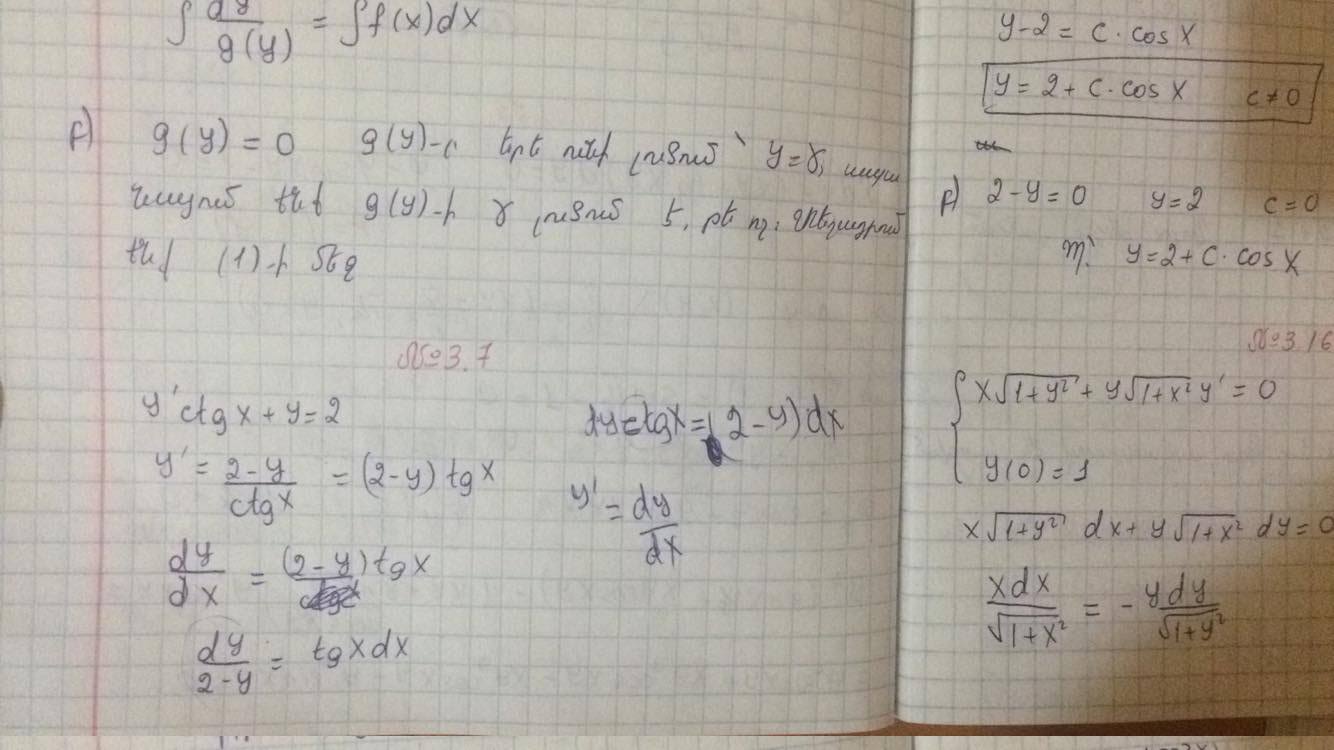 ∫ dy/g(y) = ∫ f(x)dx
բ) g(y) = 0 g(y)-ը եթե ունի լուծում ՝ y = γ, ապա
ստուգում ենք g(y)-ի γ լուծում է, թե ոչ:
ենք (1)-ի մեջ
№3.7
y' ctg x + y = 2
y' = (2-y)/(ctg x) = (2-y) tg x
dy/dx = (2-y) tg x
dy/(2-y) = tg x dx
dy ctg x = (2-y) dx
y' = dy/dx
y-2 = c · cos x
y = 2 + c · cos x c ≠ 0
բ) 2-y = 0 y = 2 c = 0
y = 2 + c · cos x
№3.16
{ x√(1+y²) + y√(1+x²) y' = 0
y(0) = 1
x√(1+y²) dx + y√(1+x²) dy = 0
xdx/√(1+x²) = - ydy/√(1+y²)